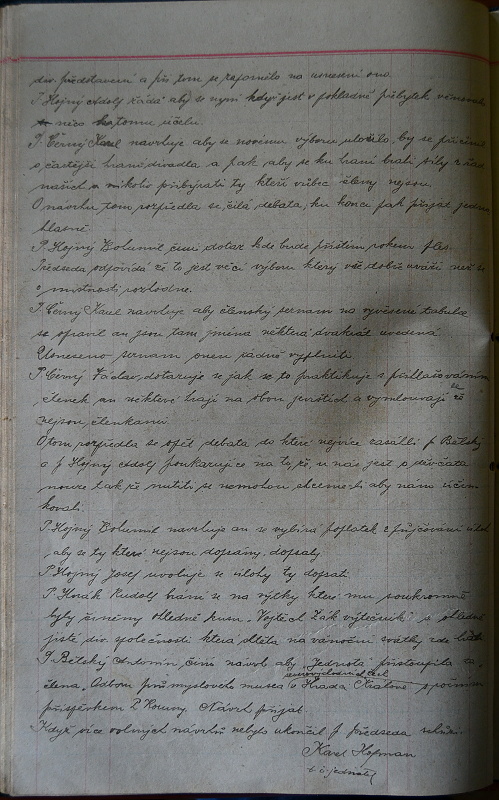 div. představení a při tom se zapomělo na usnesení ono.
P. Hojný Adolf žádá aby se nyní když jest v pokladně přebytek věnovalo
něco k tomu účelu.
P. Černý Karel navrhuje aby se novému výboru uložilo, by se přičinil
o častější hraní divadla, a pak aby se ku hraní brali síly z řad
našich a nikoliv přibírati ty kteří vůbec členy nejsou.
O návrhu tom rozpředla se čilá debata, ku konci pak přijat jedno-
hlasně.
P. Hojný Bohumil činí dotaz kde bude příštím rokem ples.
Předseda odpovídá že to jest věcí výboru který vše dobře uváží než se
o místnosti rozhodne.
P. Černý Karel navrhuje aby členský seznam na vyvěšené tabulce
se opravil an jsou tam jména některá dvakrát uvedená.
Usneseno seznam onen řádně vyplniti.
P. Černý Václav, dotazuje se jak se to praktikuje s přihlašováním
členek an některé hrají na obou jevištích a vymlouvají se že
nejsou členkami.
O tom rozpředla se opět debata do které nejvíce zasáhli p. Bětský
a p. Hojný Adolf poukazujíce na to, že u nás jest o děvčata
nouze tak že nutiti se nemohou chceme-li aby nám účin-
kovali.
P. Hojný Bohumil navrhuje an se vybírá poplatek z půjčování úloh
aby se ty které nejsou dopsány, dopsaly.
P. Hojný Josef uvoluje se úlohy ty dopsati.
P. Horák Rudolf brání se na výtky které mu soukromně
byly činěny ohledně kusu „Vojtěch Žák výtečník" a ohledně
jisté div. společnosti která chtěla na vánoční svátky zde hráti.
P. Bětský Antonín, činí návrh aby „Jednota" přistoupila za
člena „Odboru průmyslového musea v Hradci Králové s ročním
příspěvkem 2 Koruny. Návrh přijat.
Když více volných návrhů nebylo ukončil p. předseda schůzi.
Karel Hofman
t. č. jednatel